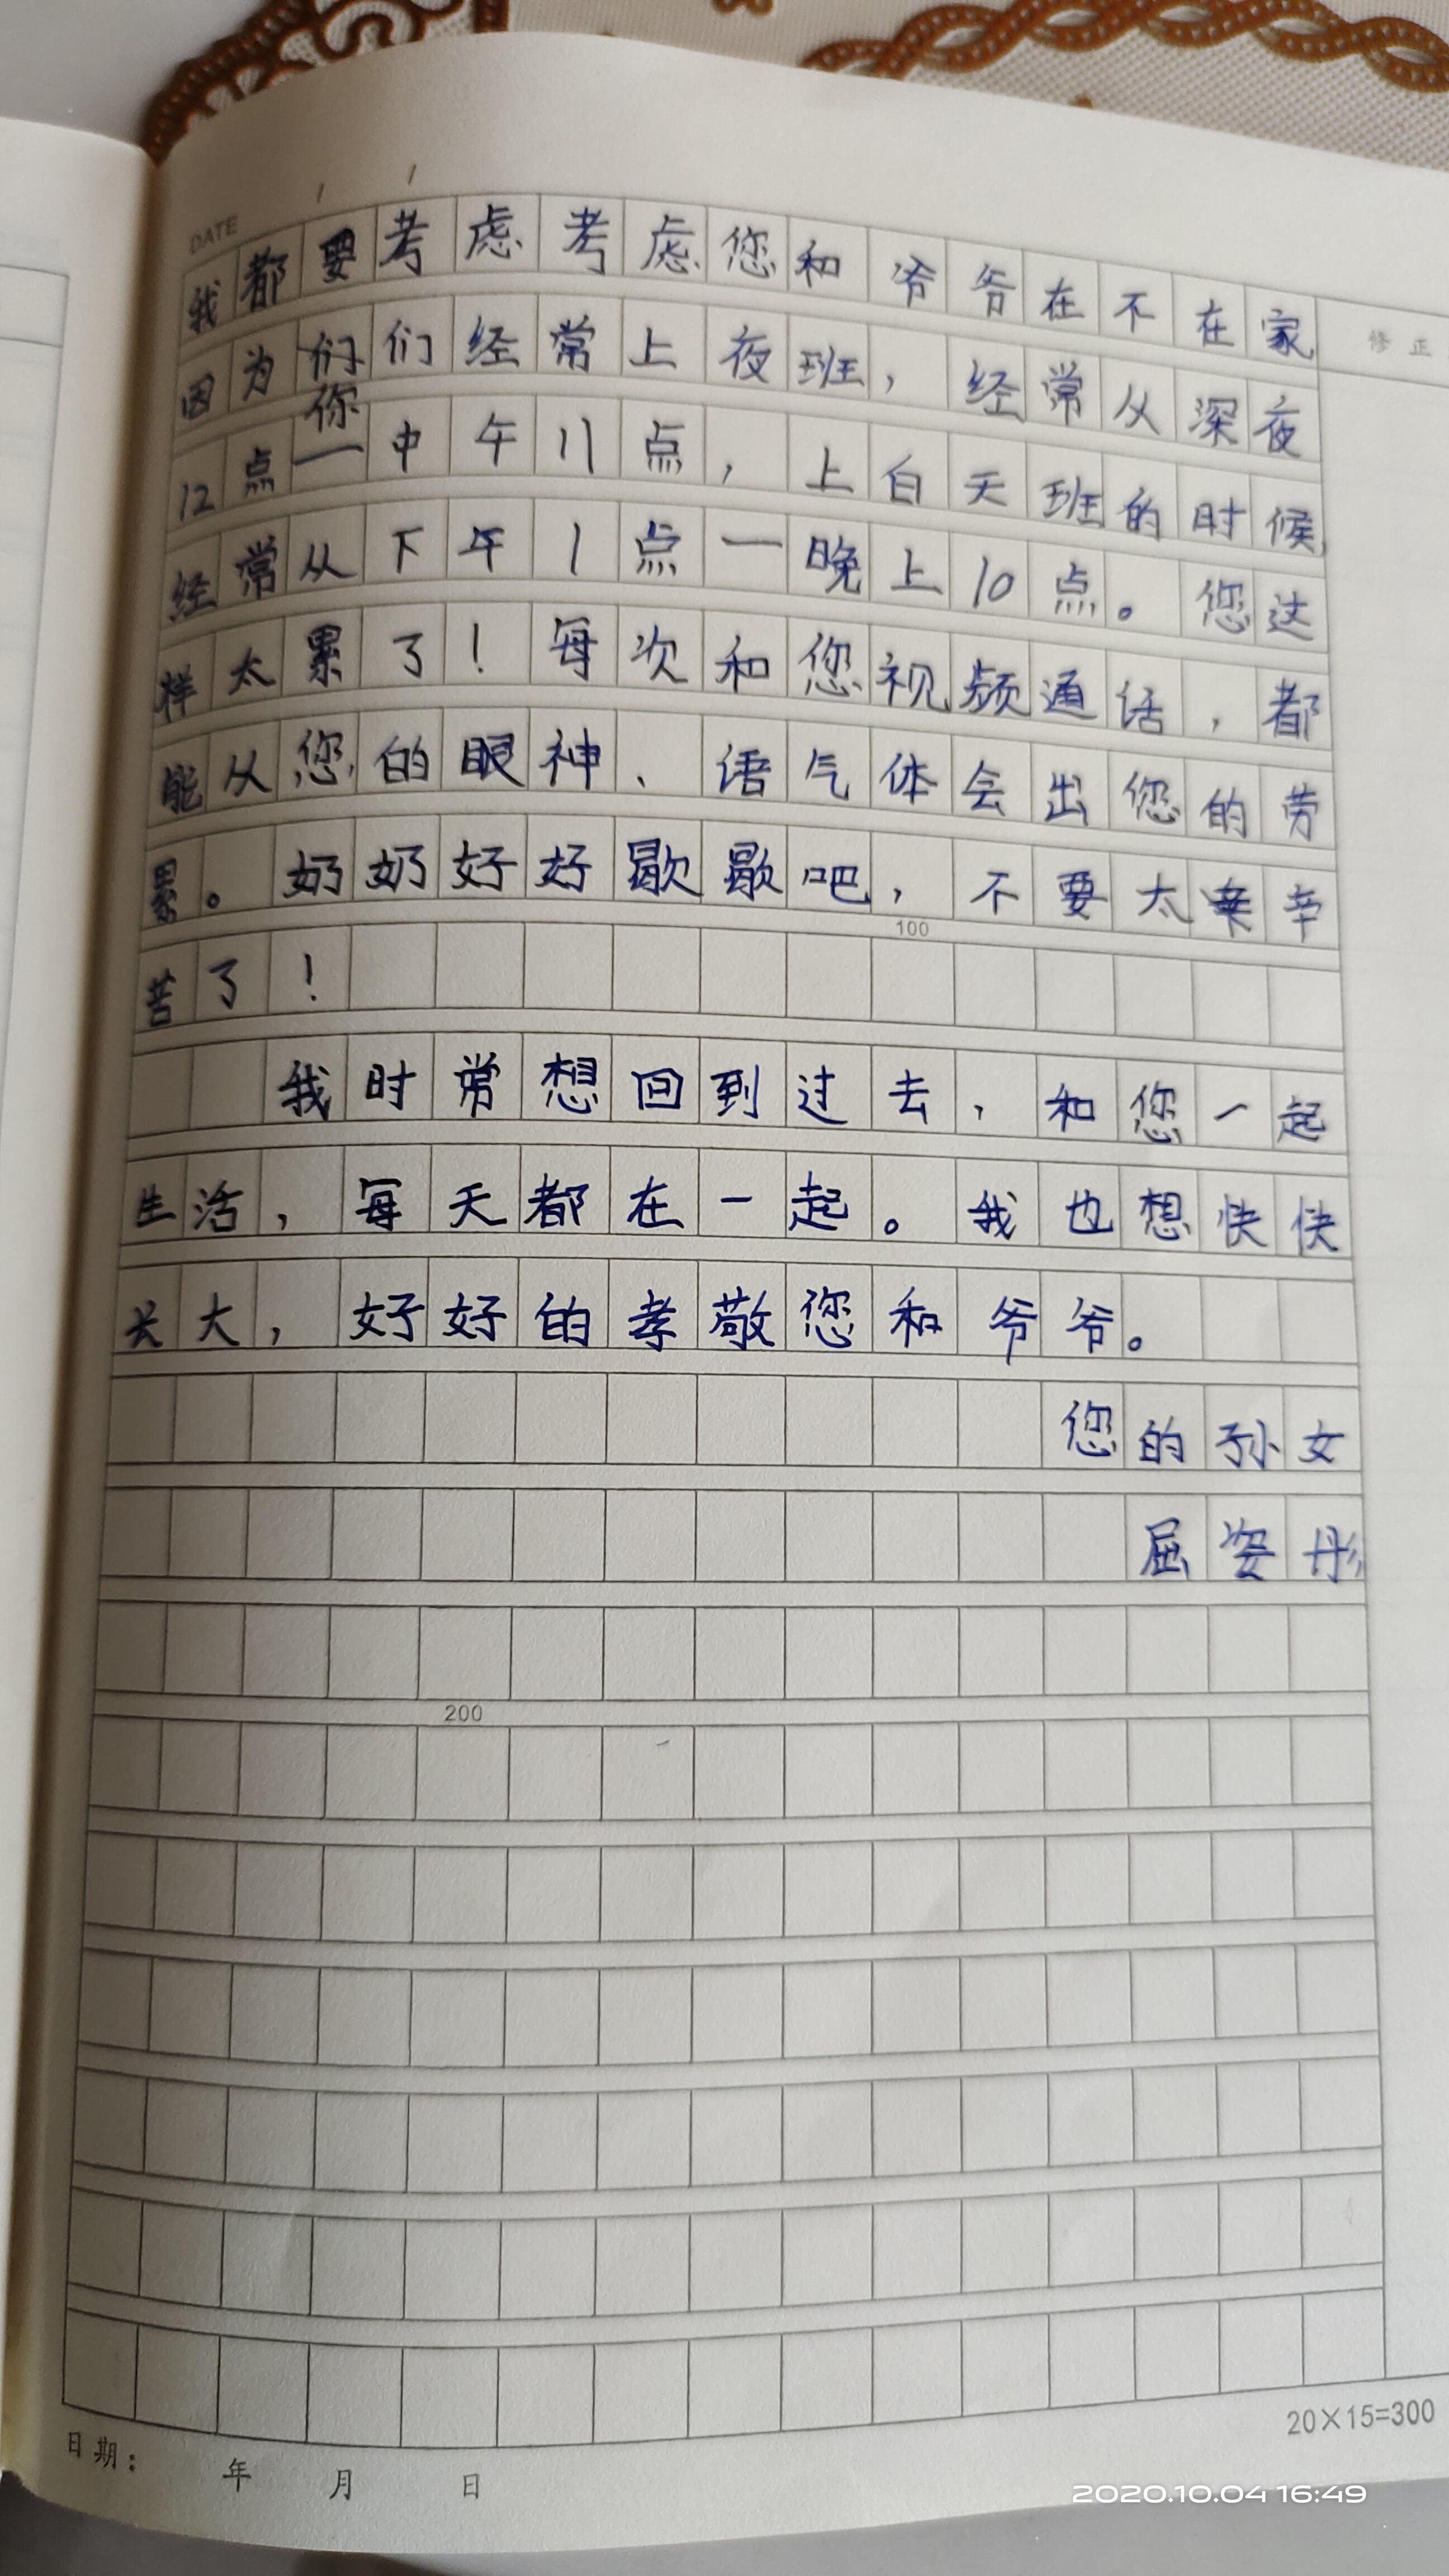 DATE / /
我都要考虑考虑您和爷爷在不在家,
修正
因为你们经常上夜班，经常从深夜
12点—中午11点，上白天班的时候,
经常从下午1点—晚上10点。您这
样太累了！每次和您视频通话，都
能从您的眼神、语气体会出您的劳
累。奶奶好好歇歇吧，不要太辛
100
苦了！
我时常想回到过去，和您一起
生活，每天都在一起。我也想快快
长大，好好的孝敬您和爷爷。
您的孙女
屈姿彤
200
20×15=300
日期： 年 月 日
2020.10.04 16:49